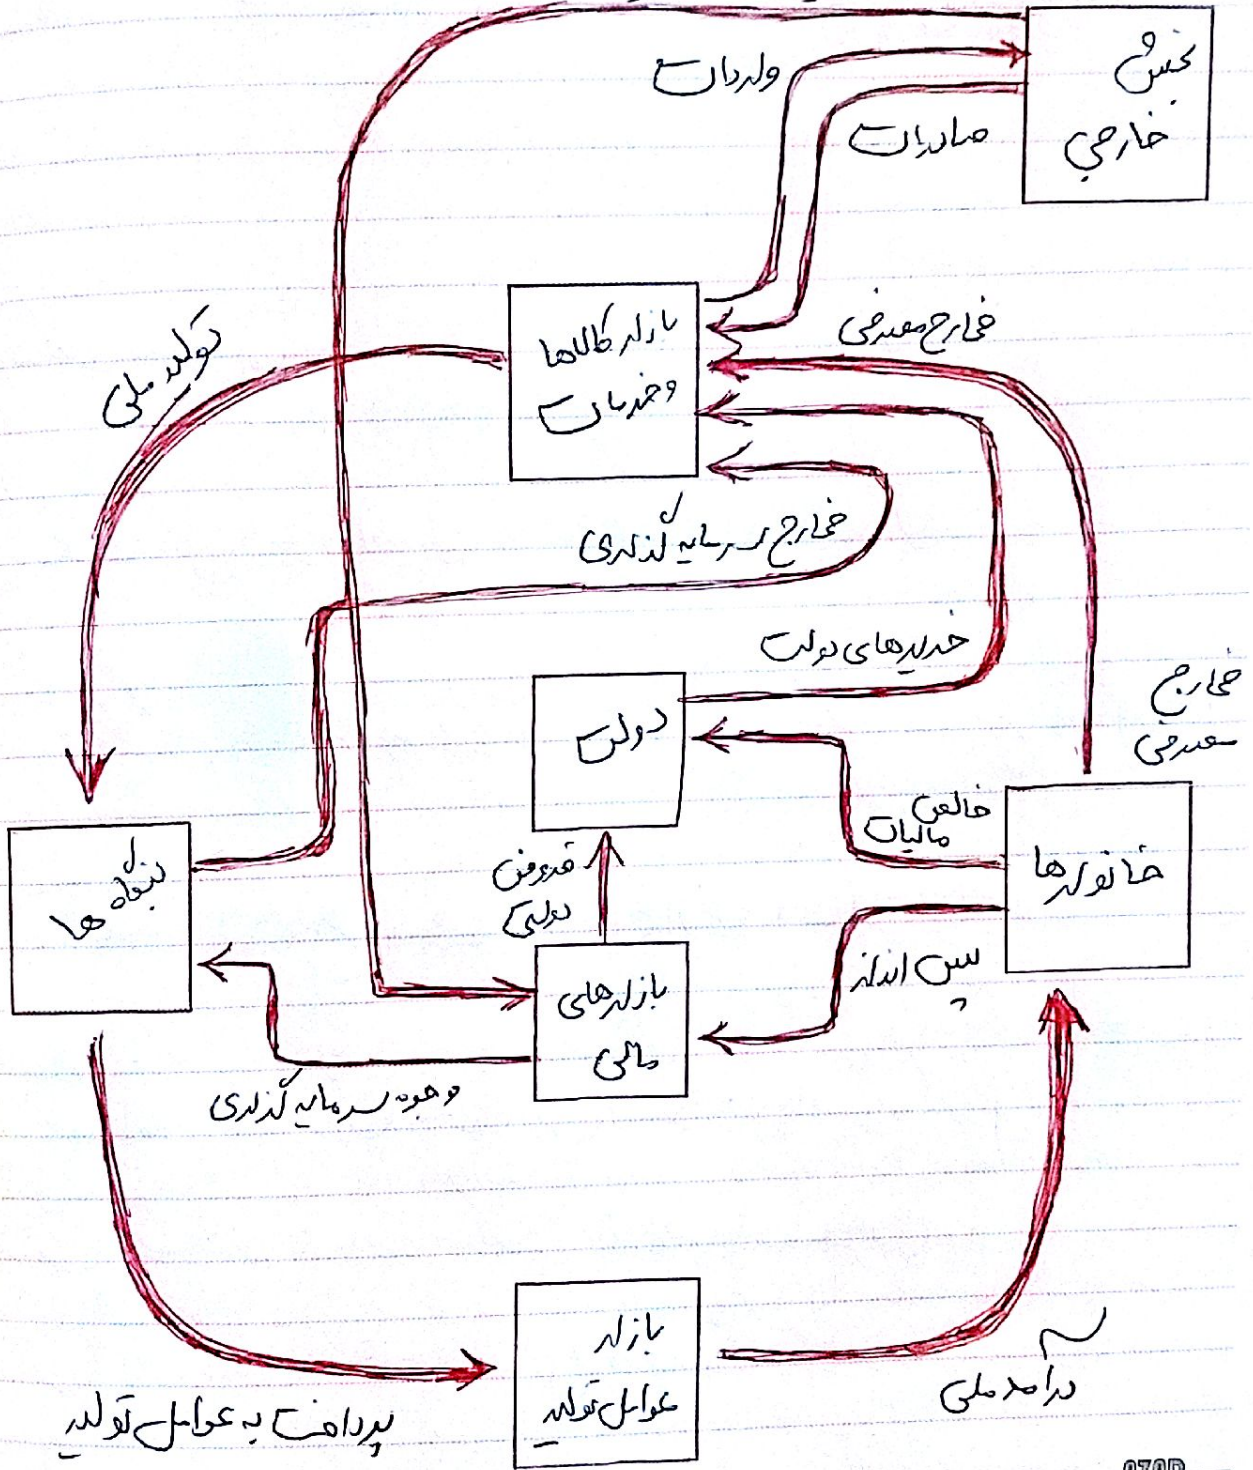 بخش
خارجی
واردات
صادرات
بازار کالاها
و خدمات
مخارج مصرفی
تولید ملی
مخارج سرمایه گذاری
خریدهای دولت
دولت
مخارج
مصرفی
خالص
مالیات
خانوارها
قروض
دولتی
بنگاه ها
پس انداز
بازارهای
مالی
وجوه سرمایه گذاری
بازار
عوامل تولید
درامد ملی
پرداخت به عوامل تولید